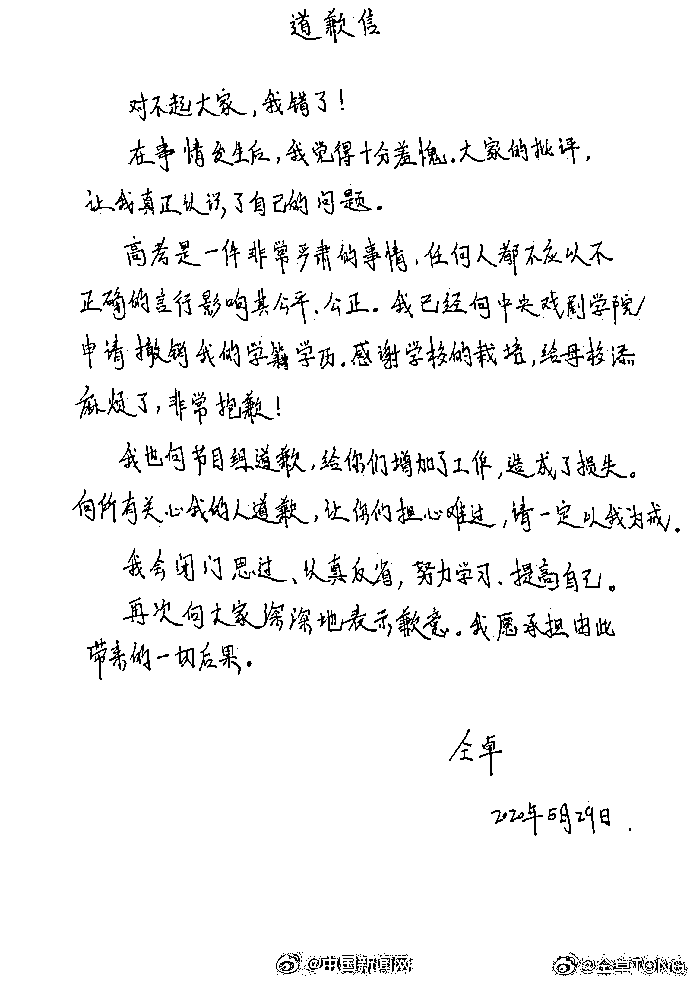 道歉信
对不起大家，我错了！
在事情发生后，我觉得十分羞愧．大家的批评，
让我真正认识了自己的问题。
高考是一件非常严肃的事情．任何人都不应以不
正确的言行影响其公平、公正。我已经向中央戏剧学院
申请撤销我的学籍学历．感谢学校的栽培，给母校添
麻烦了，非常抱歉！
我也向节目组道歉，给你们增加了工作，造成了损失。
向所有关心我的人道歉，让你们担心难过，请一定以我为戒．
我会闭门思过、认真反省，努力学习、提高自己。
再次向大家深深地表示歉意。我愿承担由此
带来的一切后果。
仝卓
2020年5月29日．
@中国新闻网
@仝卓TONG